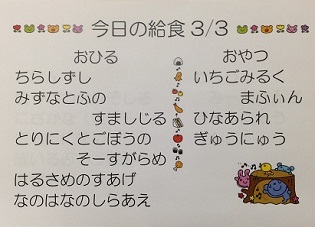 今日の給食 3/3
おひる
ちらしずし
みずなとふの
すましじる
とりにくとごぼうの
そーすがらめ
はるさめのすあげ
なのはなのしらあえ
おやつ
いちごみるく
まふぃん
ひなあられ
ぎゅうにゅう